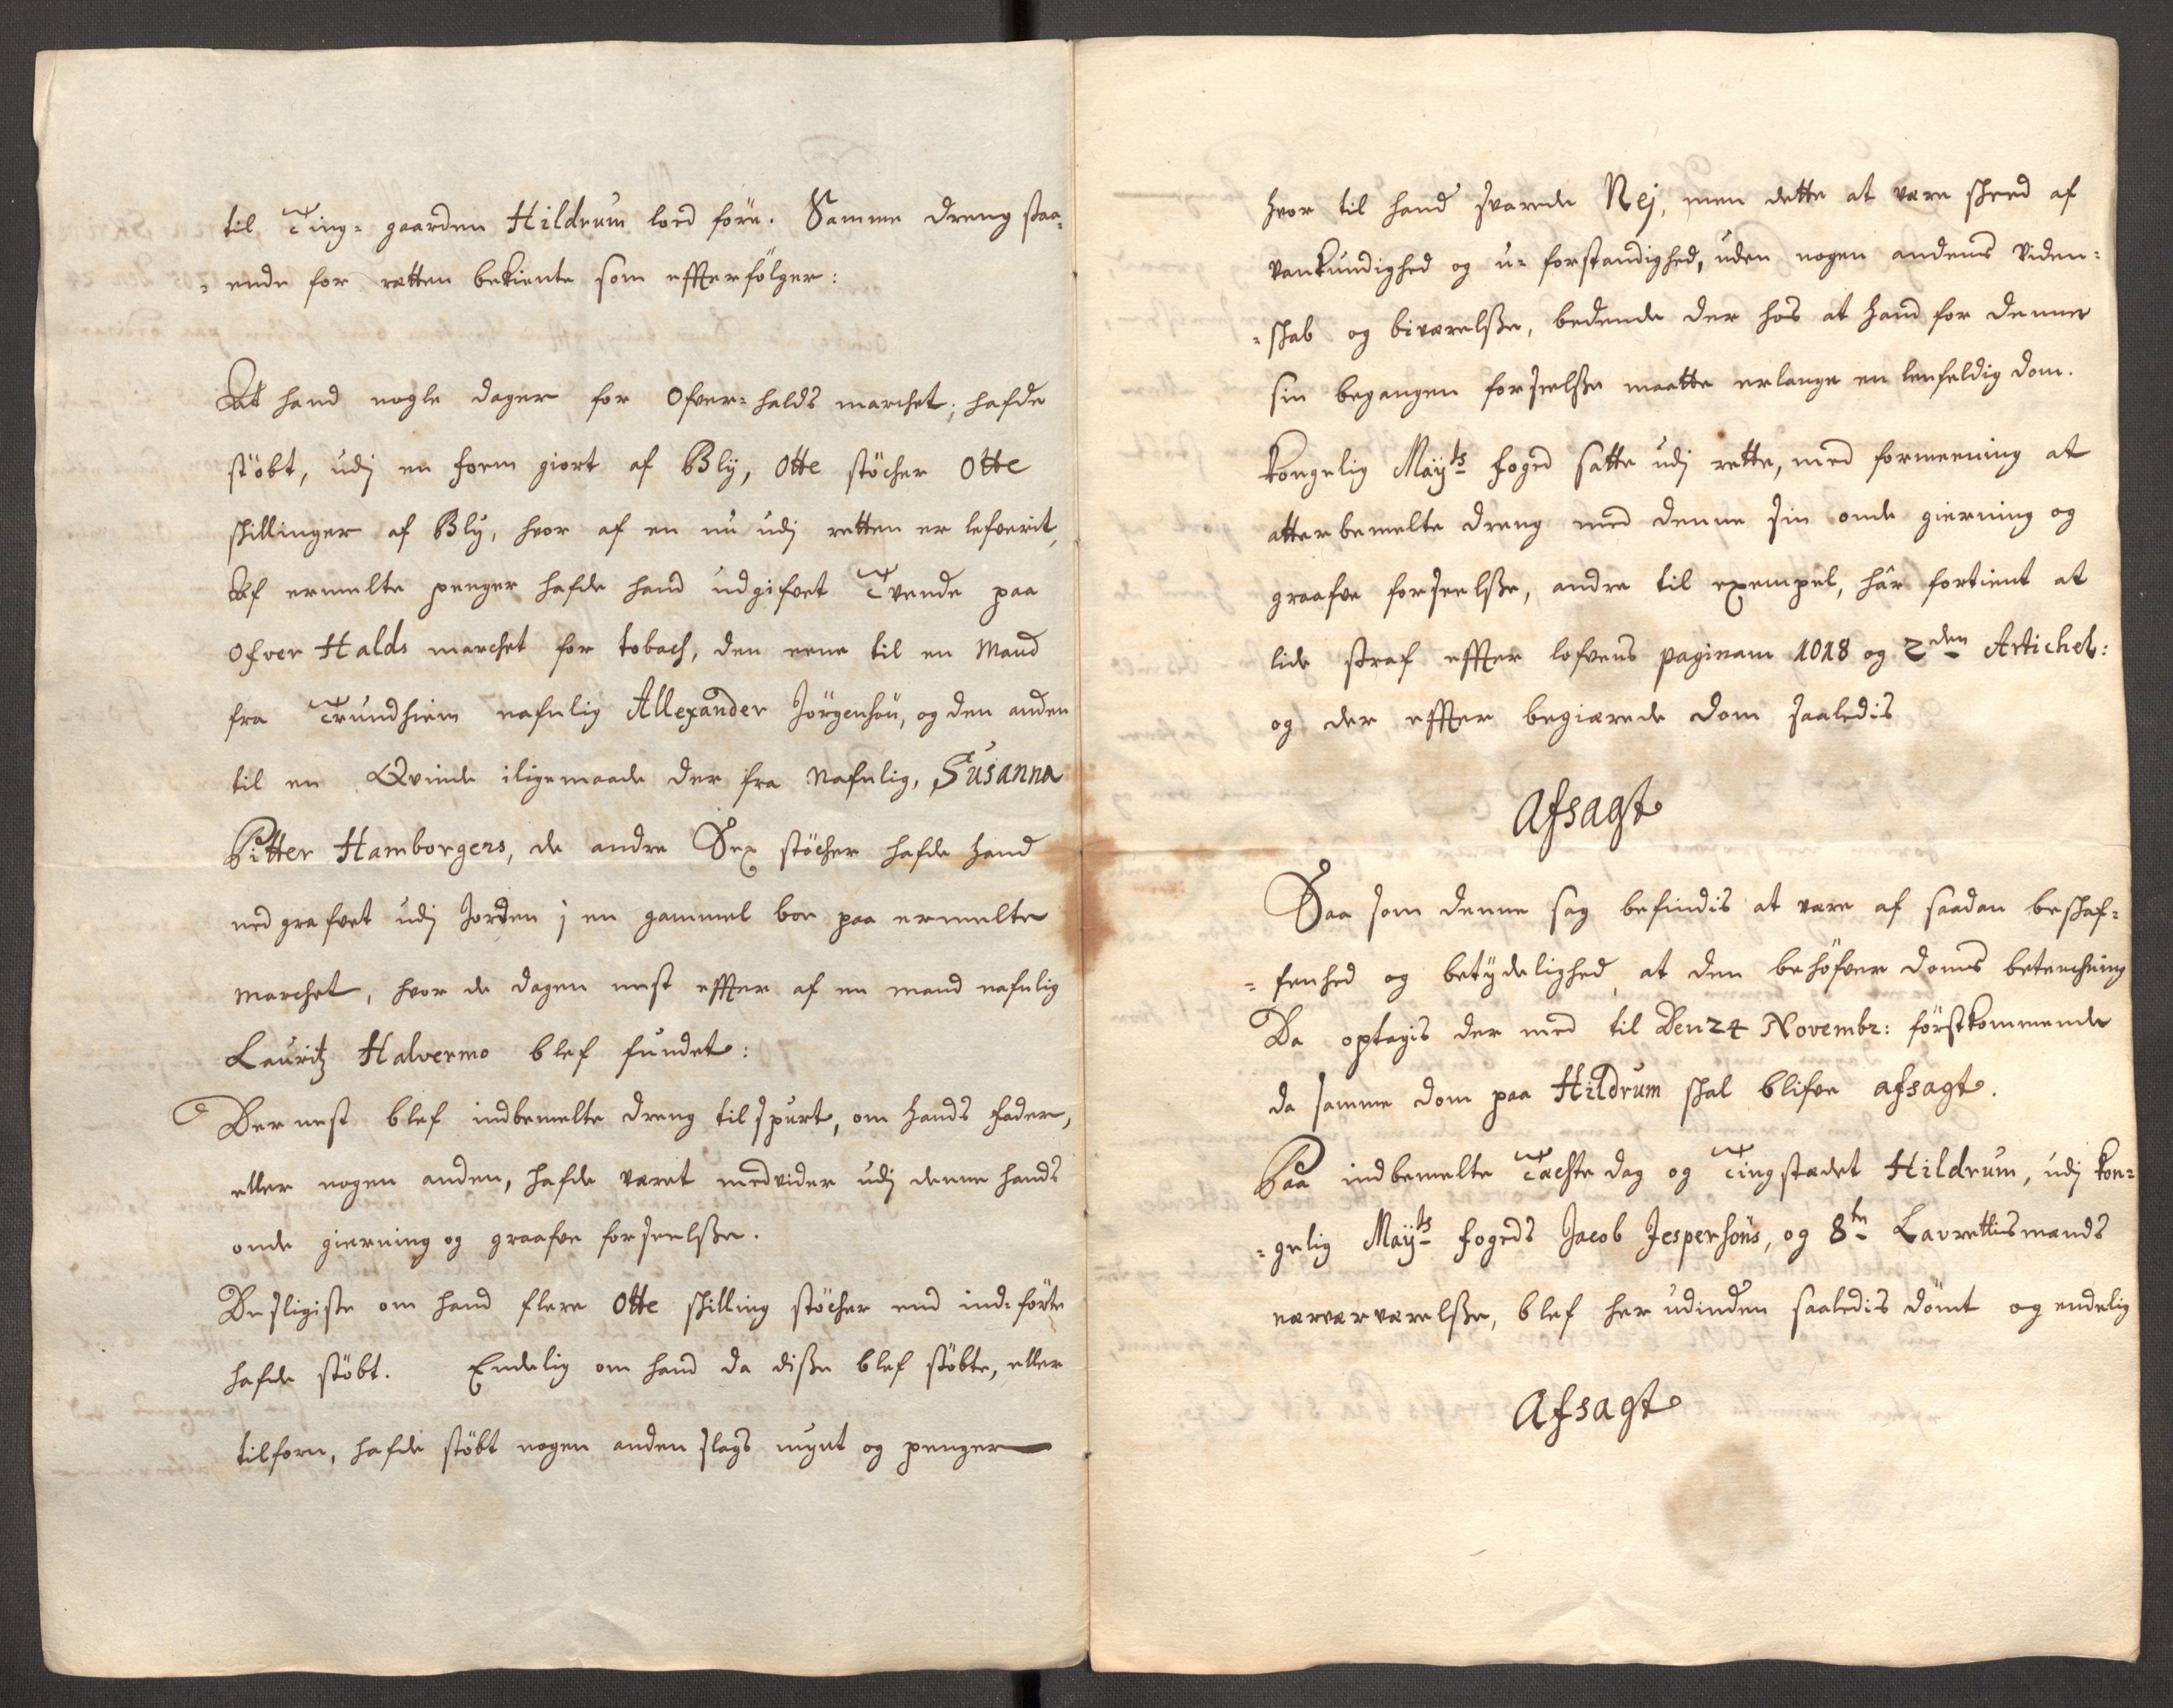 til Ting= gaarden Hildrum lod före. Samme dreng staa=
=ende for retten bekiente som effterfölger:
At hand nogle dager for Ofver=halds marchet; hafde
stöbt, udj en form giort af Blÿ, Otte stöcher Otte
skillinger af Blÿ, hvor af en nu udj retten er lefverit,
Af ermelte penger hafde hand udgifvet Tvende paa
Ofver Halds marchet for toback, den eene til en Mand
fra Trundhiem nafnlig Allexander Jörgenhön, og den anden
til en Qvinde iligemaade der fra Nafnlig, Susanna
Pitter Hamborgers, de andre Sex stöcher hafde hand
ned grafvet udj Jorden j en gammel boe paa ermelte
marchet, hvor de dagen nest effter af en mand nafnlig
Lauritz Halvermo blef fundet:
Der nest blef indbemelte dreng tilspurt, om hands fader,
eller nogen anden, hafde været medvider udj denne hands
onde gierning og graafve forseelsse.
Desligiste om hand flere Otte skilling stöcher end ind=förte
hafde stöbt. Endelig om hand da disse blef stöbte, eller
tilforn, hafde stöbt nogen anden slags mynt og penger
hvor til hand svarede Nej, men dette at være skeed af
vankundighed og u=forstandighed, uden nogen andens viden=
=skab og biværelsse, bedende der hos at hand for denne
sin begangen forseelsse maatte erlange en lenfeldig dom.
Kongelig Maÿts foged satte udj rette, med formeening at
atterbemelte dreng med denne sin onde gierning og
graafve forseelsse, andre til exempel, hår fortient at
lide straf effter lofvens paginam 1018 og 2den Artichel:
og der effter begiærede dom saaledis
Afsagt
Saa som denne sag befindis at være af saadan beskaf=
=fenhed og betydelighed at den behöfver doms betenchning
Da optagis der med til Den 24 Novembr: förstkommende
da samme dom paa Hildrum skal blifve afsagt.
Paa indbemelte Tæchte dag og Tingstædet Hildrum, udj kon=
=gelig Maÿts fogeds Jacob Jesperhöns, og 8te Lavrettismands
nærværværelsse, blef her udinden saaledis dömt og endelig
Afsagt